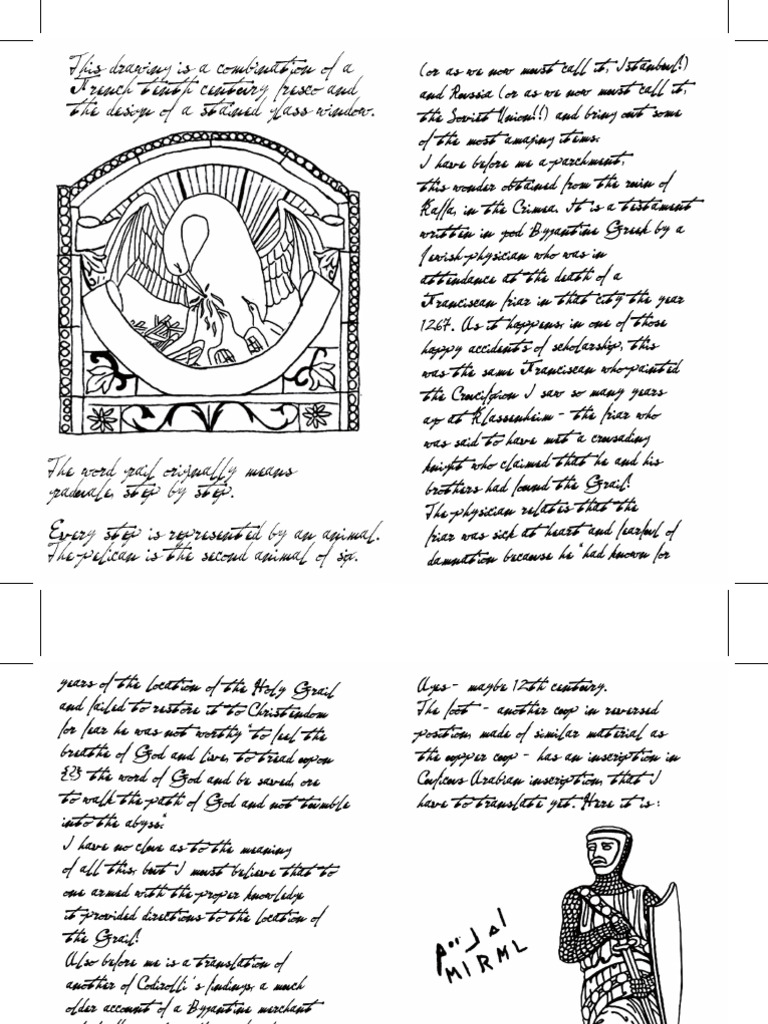 This drawing is a combination of a
French tenth century fresco and
the design of a stained glass window.
The word grail originally means
graduale, step by step.
Every step is represented by an animal.
The pelican is the second animal of six.
(or as we now must call it, Istanbul!)
and Russia (or as we now must call it,
the Soviet Union!!) and bring out some
of the most amazing items.
I have before me a parchment,
this wonder obtained from the ruin of
Kaffa, in the Crimea. It is a testament
written in good Byzantine Greek by a
Jewish physician who was in
attendance at the death of a
Franciscan friar in that city the year
1267. As it happens, in one of those
happy accidents of scholarship, this
was the same Franciscan who painted
the Crucifixion I saw so many years
ago at Klassenheim - the friar who
was said to have met a crusading
knight who claimed that he and his
brothers had found the Grail!
The physician relates that the
friar was sick at heart and fearful of
damnation because he "had known for
years of the location of the Holy Grail
and failed to restore it to Christendom
for fear he was not worthy "to feel the
breathe of God and live, to tread upon
{?} the word of God and be saved, ore
to walk the path of God and not tumble
into the abyss."
I have no clue as to the meaning
of all this, but I must believe that to
one armed with the proper knowledge
it provided directions to the location of
the Grail!
Also before me is a translation of
another of Codirolli's findings, a much
older account of a Byzantine merchant
Ages - maybe 12th century.
The foot - another cup in reversed
position, made of similar material as
the upper cup - has an inscription in
Cuficus Arabian inscription, that I
have to translate yet. Here it is:
MIRML